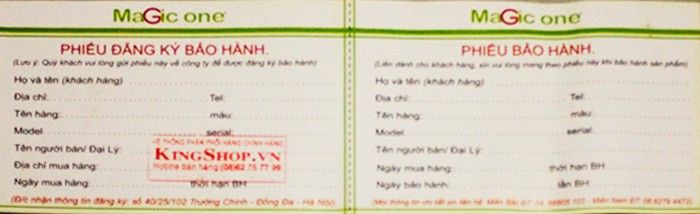 MaGic one
PHIẾU ĐĂNG KÝ BẢO HÀNH.
(Lưu ý: Quý khách vui lòng gửi phiếu này về công ty để được đăng ký bảo hành)
Họ và tên (khách hàng)
Địa chỉ: Tel:
Tên hàng: màu:
Model serial:
Tên người bán/ Đại Lý:
HỆ THỐNG PHÂN PHỐI HÀNG CHÍNH HÃNG
KINGSHOP.VN
Hotline bán hàng (08)62 75 77 99
Địa chỉ mua hàng:
Ngày mua hàng: thời hạn BH:
(Đ/c nhận thông tin đăng ký: số 40/25/102 Trường Chinh - Đống Đa - Hà Nội)
MaGic one
PHIẾU BẢO HÀNH.
(Liên dành cho khách hàng, xin vui lòng mang theo phiếu này khi bảo hành sản phẩm)
Họ và tên (khách hàng)
Địa chỉ: Tel:
Tên hàng: màu:
Model. serial:
Tên người bán/ Đại Lý:
Ngày mua hàng: thời hạn BH:
Ngày bảo hành: lần BH:
(Mọi thông tin chi tiết xin liên hệ: Miền Bắc ĐT: 04. Miền Nam ĐT: 08.6279 4473)